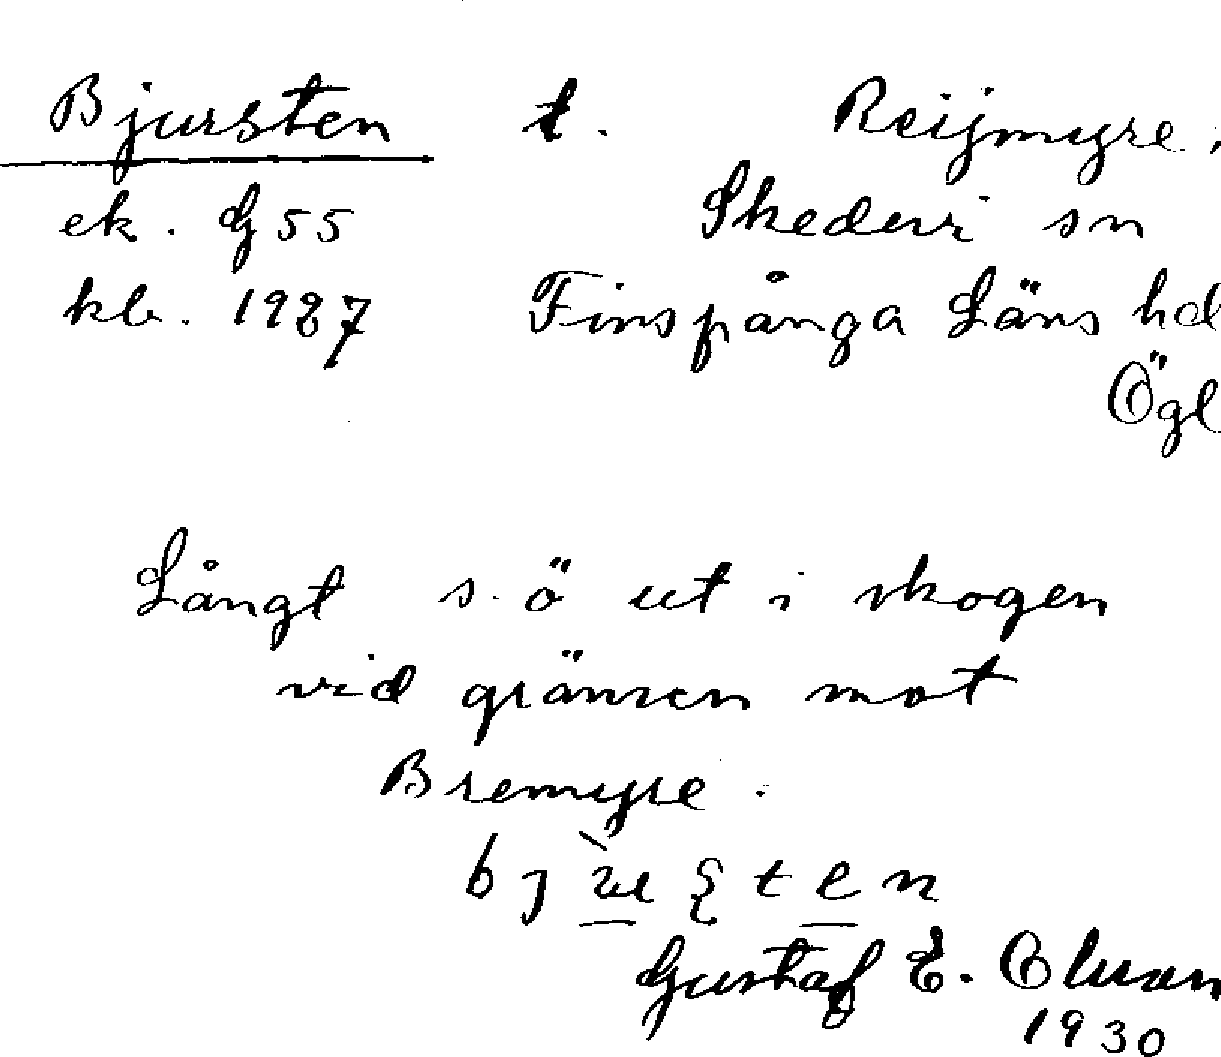 Bjursten t. Reijmyre,
ek. G 55 Skedevi sn
kb. 1927 Finspånga Läns hd
Ögl
Långt s. ö ut i skogen
vid gränsen mot
Bremyre.
Gustaf E.
1930